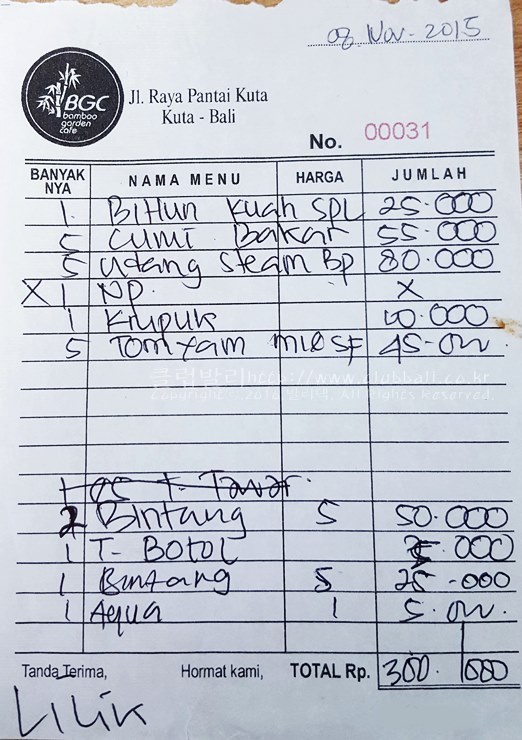 08 Nov - 2015
BGC
bamboo
garden
cafe
Jl. Raya Pantai Kuta
Kuta - Bali
No. 00031
BANYAK NYA NAMA MENU HARGA JUMLAH
1 BiHun Kuah SPL 25.000
5 Cumi Bakar 55.000
5 udang Steam Bp 80.000
X 1 NP. X
1 Krupuk 10.000
5 Tomyam 45.000
클럽발리 http://www.clubbali.co.kr
All Rights Reserved.
1 es T. Tawar.
2 Bintang S 50.000
1 T- Botol 5.000
1 Bintang S 25-000
1 Aqua 1 5.000
Tanda Terima, Hormat kami, TOTAL Rp. 300.000
LiLiK